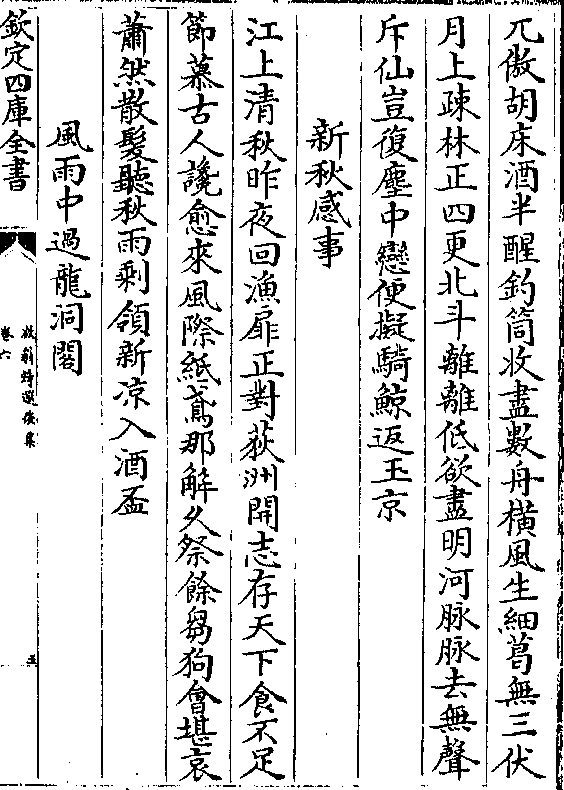 兀傲胡床酒半醒釣筒收盡數舟橫風生細葛無三伏
月上疎林正四更北斗離離低欲盡明河脉脉去無聲
斥仙豈復塵中戀便擬騎鯨返玉京
新秋感事
江上清秋昨夜回漁扉正對荻洲開志存天下食不足
節慕古人讒愈來風際紙鳶那解久祭餘芻狗會堪哀
蕭然散髮聽秋雨剩領新凉入酒盃
風雨中過龍洞閣
欽定四庫全書
放翁詩選後集
卷六
五